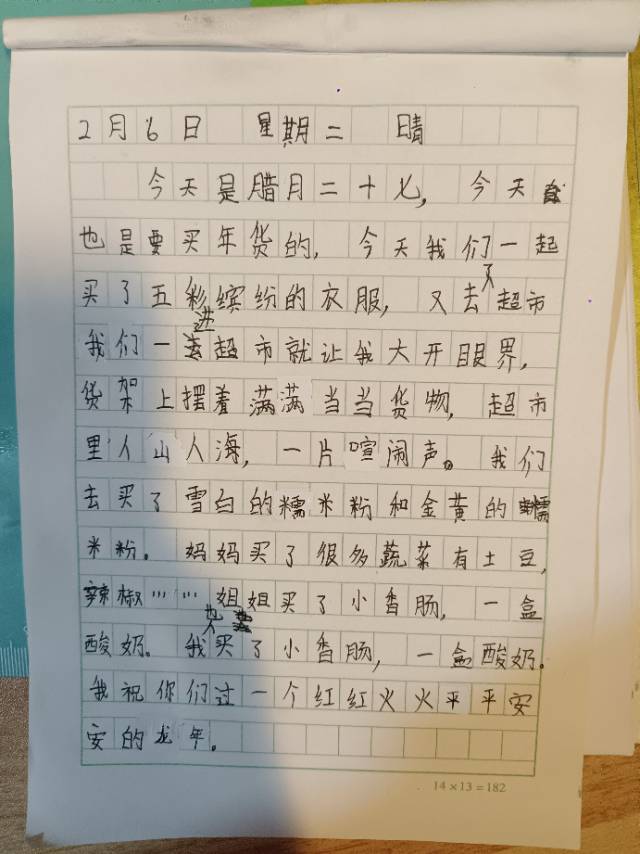 2月6日 星期二 晴
今天是腊月二十七，今天
也是要买年货的，今天我们一起
买了五彩缤纷的衣服，又去了超市
我们一进超市就让我大开眼界，
货架上摆着满满当当货物，超市
里人山人海，一片喧闹声。我们
去买了雪白的糯米粉和金黄的糯
米粉。妈妈买了很多蔬菜有土豆，
辣椒……姐姐买了小香肠，一盒
酸奶。我也买了小香肠，一盒酸奶。
我祝你们过一个红红火火平平安
安的龙年。
14×13=182